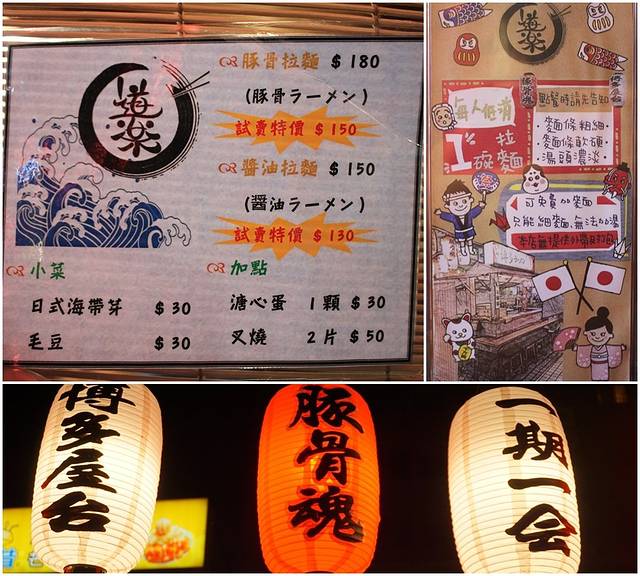 道楽
豚骨拉麵 $180
(豚骨ラーメン)
試賣特價 $150
醬油拉麵 $150
(醤油ラーメン)
試賣特價 $130
小菜
日式海帶芽 $30
毛豆 $30
加點
溏心蛋 1顆 $30
叉燒 2片 $50
道楽
豚骨魂
博多屋台
每人低消
1碗拉麵
點餐時請先告知
麵條粗細·
麵條軟硬·
湯頭濃淡
可免費加麵
只能細麵,無法加湯
博多屋台
豚骨魂
一期一会